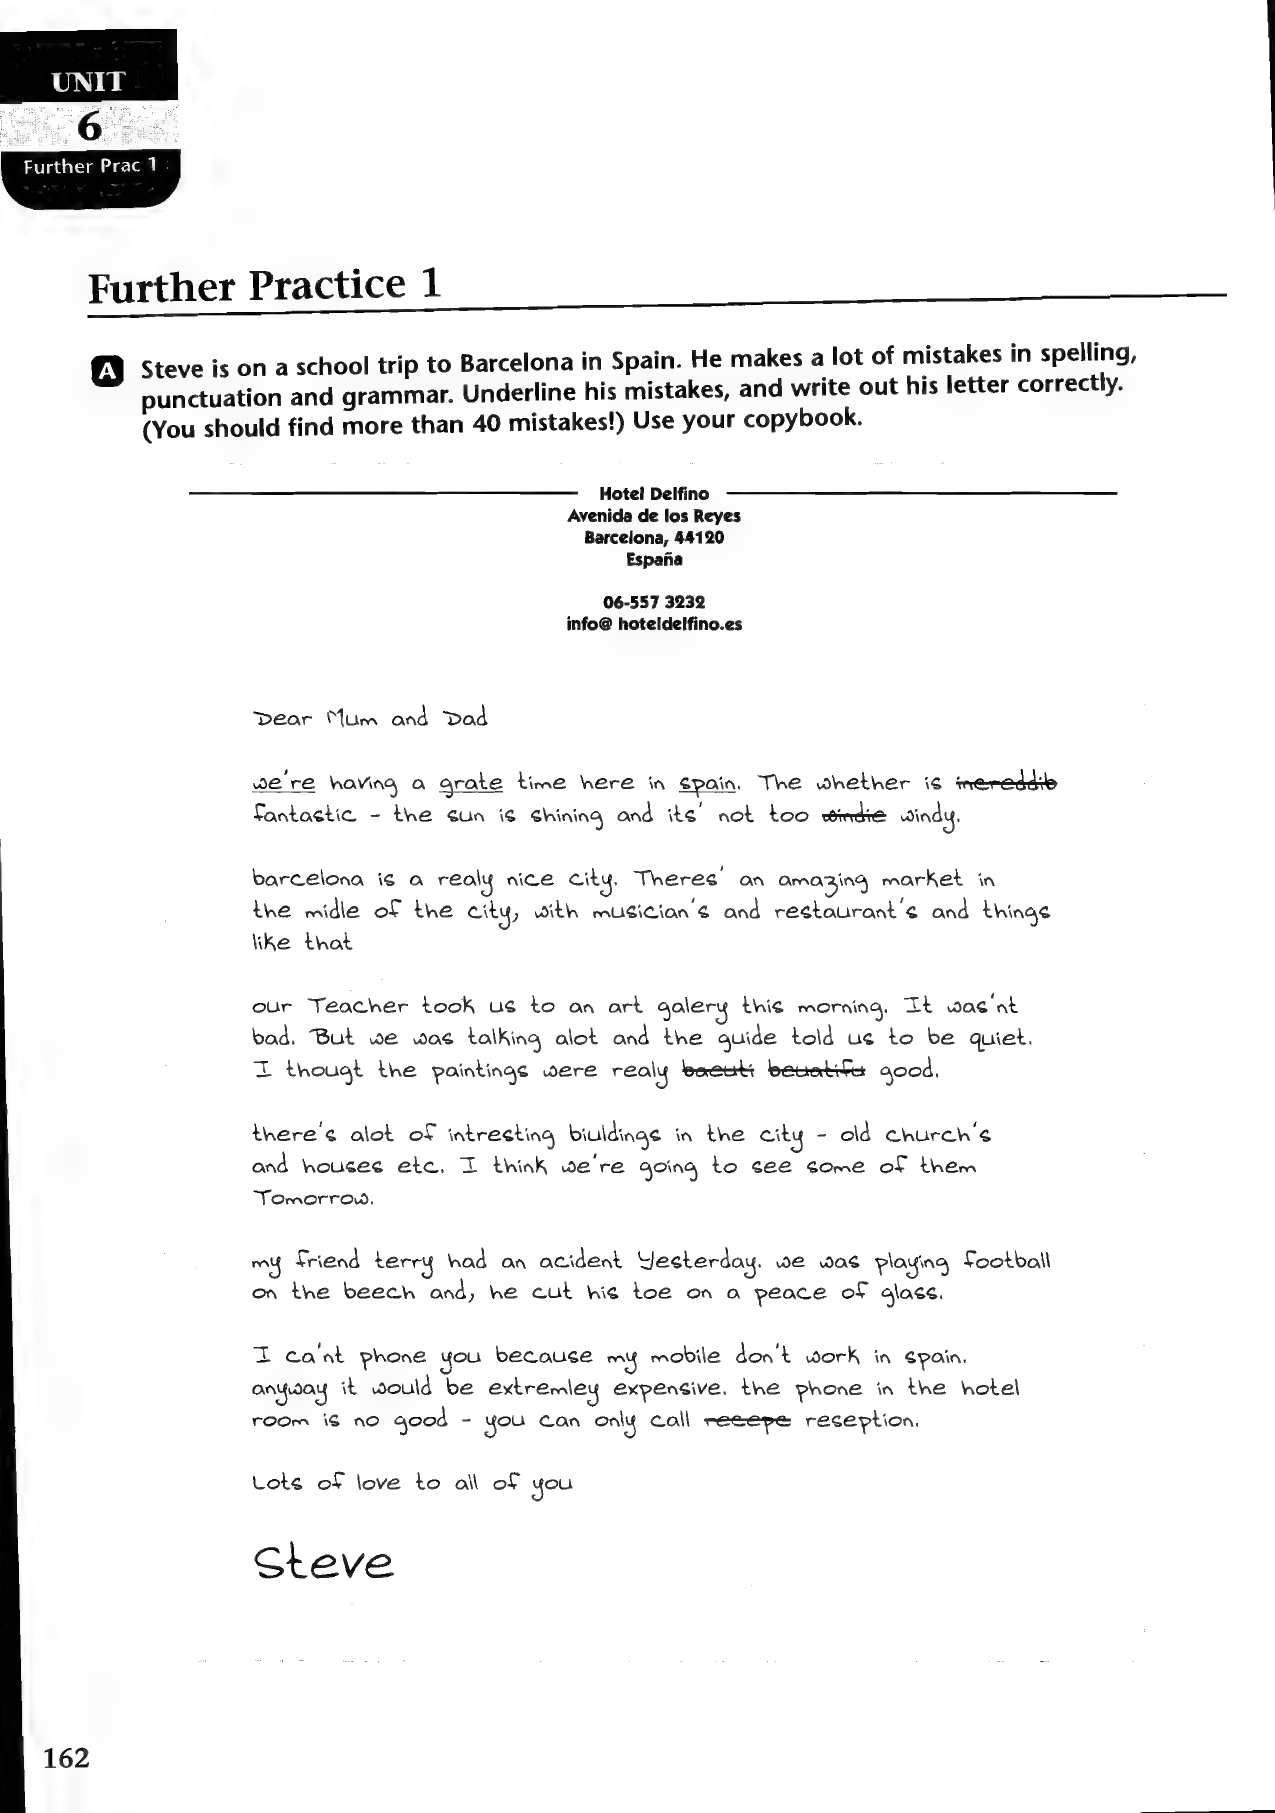 UNIT
6
Further Prac 1
Further Practice 1
A Steve is on a school trip to Barcelona in Spain. He makes a lot of mistakes in spelling,
punctuation and grammar. Underline his mistakes, and write out his letter correctly.
(You should find more than 40 mistakes!) Use your copybook.
Hotel Delfino
Avenida de los Reyes
Barcelona, 44120
España
06-557 3232
info@ hoteldelfino.es
Dear Mum and Dad
we're having a grate time here in spain. The whether is incredib
fantastic - the sun is shining and its' not too windie windy.
barcelona is a realy nice city. Theres' an amazing market in
the midle of the city, with musician's and restaurant's and things
like that
our Teacher took us to an art galery this morning. It was'nt
bad. But we was talking alot and the guide told us to be quiet.
I thougt the paintings were realy baeuti beuatifu good.
there's alot of intresting biuldings in the city - old church's
and houses etc. I think we're going to see some of them
Tomorrow.
my friend terry had an acident Yesterday. we was playing football
on the beech and, he cut his toe on a peace of glass.
I ca'nt phone you because my mobile don't work in spain.
anyway it would be extremley expensive. the phone in the hotel
room is no good - you can only call recepe reseption.
Lots of love to all of you
Steve
162